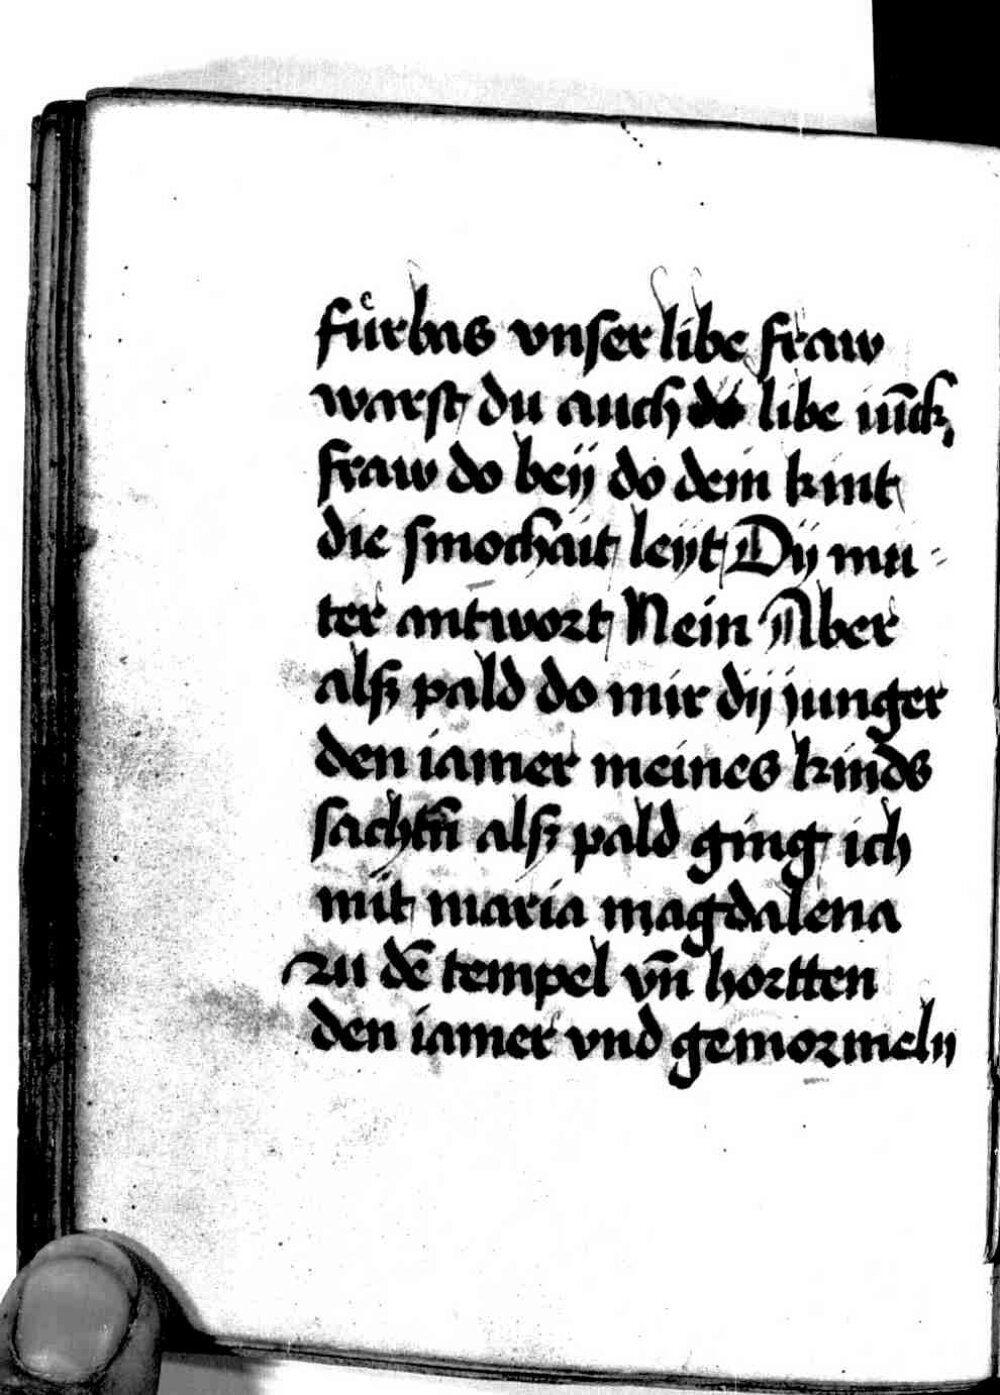 fuͤrbas vnſer libe fraw
warſt du auch libe iūck
fraw do beÿ do dein kint
die ſmochait leÿt Dÿ mu-
ter antwort Nein Aber
alſz pald do mir dÿ junger
den iamer meines kinds
ſachtn̄ alſz pald ging ich
mit maria magdalena
zu dē tempel vn̄ hortten
den iamer vnd gemormeln